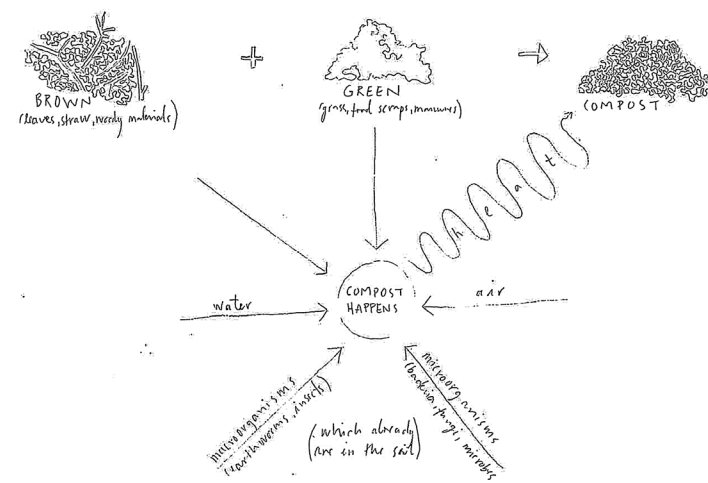 BROWN
(leaves, straw, woody materials)
+
GREEN
(grass, food scraps, manures)
COMPOST
heat
COMPOST
HAPPENS
water
air
macroorganisms
(earthworms, insects)
(which already
are in the soil)
microorganisms
(bacteria, fungi, microbes